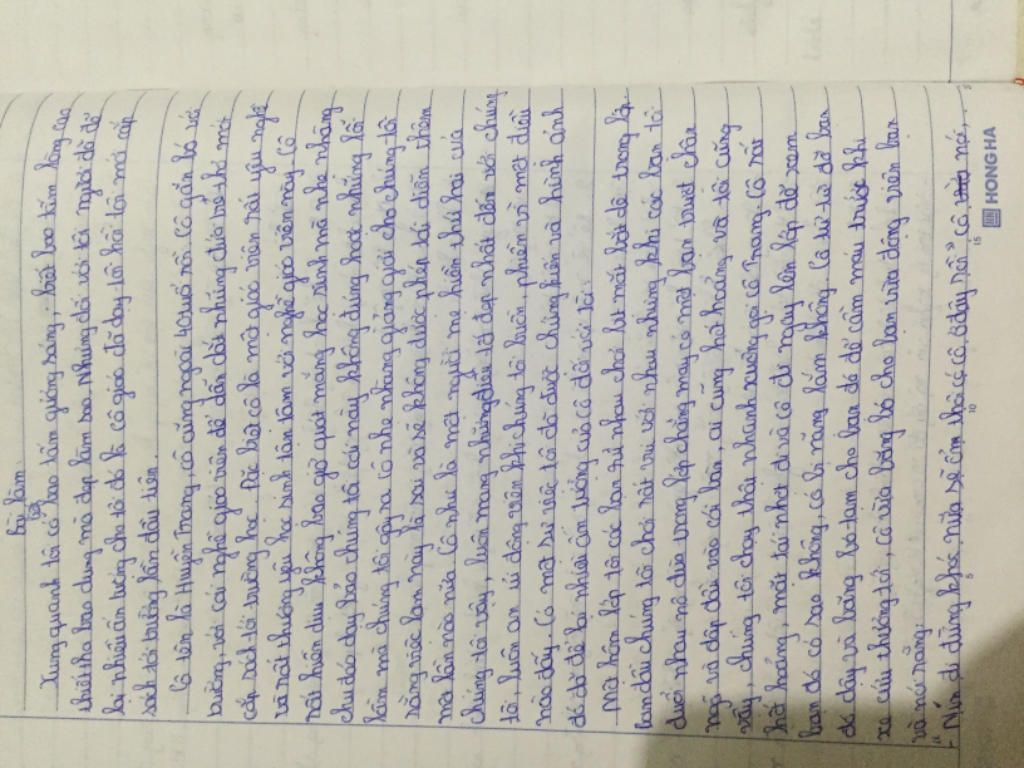 Bài làm
Xung quanh tôi có bao tấm gương sáng, biết bao tấm lòng cao
thiết tha bao dung mà đẹp làm sao. Nhưng đối với tôi người đã để
lại nhiều ấn tượng cho tôi đó là cô giáo đã dạy tôi hồi tôi mới cấp
sách tới trường lần đầu tiên.
Cô tên là Huyền Trang, cô cũng ngoài 40 tuổi rồi. Cô gắn bó với
trường, với cái nghề giáo viên để dẫn dắt những đứa trẻ thơ mới
cấp sách tới trường học. Đặc biệt cô là một giáo viên rất yêu nghề
và rất thương yêu học sinh tận tâm với nghề giáo viên này. Cô
rất hiền dịu không bao giờ quát mắng học sinh mà nhẹ nhàng
chu đáo dạy bảo chúng tôi cái này không đúng hoặc những lỗi
lầm mà chúng tôi gây ra cô nhẹ nhàng giảng giải cho chúng tôi
rằng việc làm này là sai và sẽ không được phép tái diễn thêm
một lần nào nữa. Cô như là một người mẹ hiền thứ hai của
chúng tôi vậy, luôn mang những điều tốt đẹp nhất đến với chúng
tôi, luôn an ủi động viên khi chúng tôi buồn, phiền vì một điều
nào đấy. Có một sự việc tôi đã được chứng kiến và hình ảnh
đó đã để lại nhiều ấn tượng của cô đối với tôi.
Một hôm lớp tôi các bạn rủ nhau chơi bịt mắt bắt dê trong lớp
ban đầu chúng tôi chơi rất vui với nhau nhưng khi các bạn tôi
đuổi nhau nô đùa trong lớp chẳng may có một bạn trượt chân
ngã và đập đầu vào cái bàn, ai cũng hốt hoảng và tôi cũng
vậy, chúng tôi chạy thật nhanh xuống gọi cô Trang. Cô rất
hốt hoảng, mặt tái nhợt đi và cô đi ngay lên lớp để xem
bạn đó có sao không, có bị nặng lắm không. Cô từ từ đỡ bạn
đó dậy và băng bó tạm cho bạn đó để cầm máu trước khi
xe cứu thương tới, cô vừa băng bó cho bạn vừa động viên bạn
và nói rằng:
- "Nín đi đừng khóc nữa sẽ ổn thôi có cô ở đây rồi" cô nói,
5
10
15
HONG HA